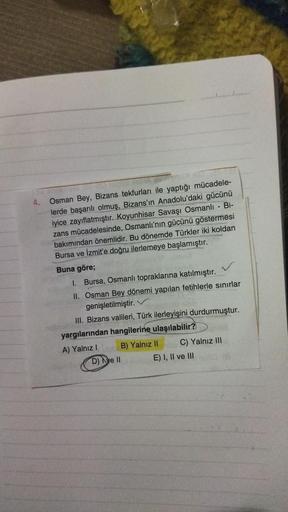 4. Osman Bey, Bizans tekfurları ile yaptığı mücadele-
lerde başarılı olmuş, Bizans'ın Anadolu'daki gücünü
iyice zayıflatmıştır. Koyunhisar Savaşı Osmanlı - Bi-
zans mücadelesinde, Osmanlı'nın gücünü göstermesi
bakımından önemlidir. Bu dönemde Türkler iki koldan
Bursa ve İzmit'e doğru ilerlemeye başlamıştır.
Buna göre;
I. Bursa, Osmanlı topraklarına katılmıştır.
II. Osman Bey dönemi yapılan fetihlerle sınırlar
genişletilmiştir.
III. Bizans valileri, Türk ilerleyişini durdurmuştur.
yargılarından hangilerine ulaşılabilir?
A) Yalnız I B) Yalnız II C) Yalnız III
D) I ve II E) I, II ve III